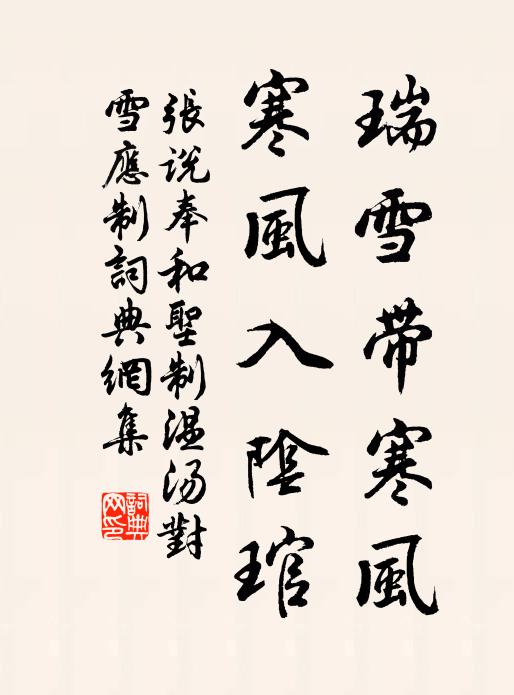 瑞雪帶寒風
寒風入陰琯
張説奉和聖制温湯對
雪應制詞典網集
詞典網印